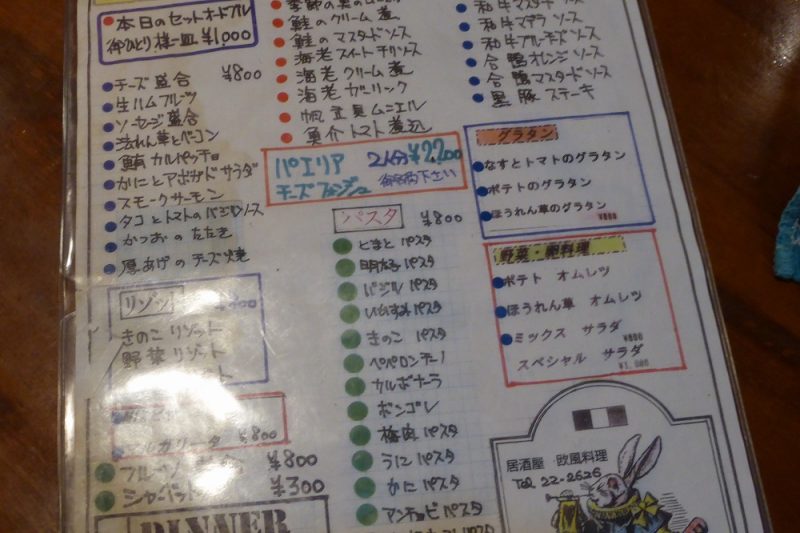 本日のセットオードブル
御ひとり様一皿 ¥1,000
チーズ盛合 ¥800
生ハムフルーツ
ソーセージ盛合
法れん草とベーコン
鮪カルパッチョ
かにとアボガドサラダ
スモークサーモン
タコとトマトのバジルソース
かつおのたたき
厚あげのチーズ焼
鮭のクリーム煮
鮭のマスタードソース
海老スイートチリソース
海老クリーム煮
海老ガーリック
帆立貝ムニエル
魚介トマト煮込
和牛マスタードソース
和牛マデラソース
和牛ブルーチーズソース
合鴨オレンジソース
合鴨マスタードソース
黒豚ステーキ
パエリア 2人分 ¥2200
チーズフォンジュ
パスタ ¥800
とまとパスタ
明太子パスタ
バジルパスタ
いかすみパスタ
きのこパスタ
ペペロンチーノ
カルボナーラ
ボンゴレ
梅肉パスタ
うにパスタ
かにパスタ
アンチョビパスタ
グラタン
なすとトマトのグラタン
ポテトのグラタン
ほうれん草のグラタン
¥800
野菜・卵料理
ポテト オムレツ
ほうれん草 オムレツ
ミックス サラダ
¥800
スペシャル サラダ
¥1,000
リゾット
きのこリゾット
野菜リゾット
¥800
フルーツ ¥800
シャーベット ¥300
DINNER
居酒屋 欧風料理
TEL 22-2626